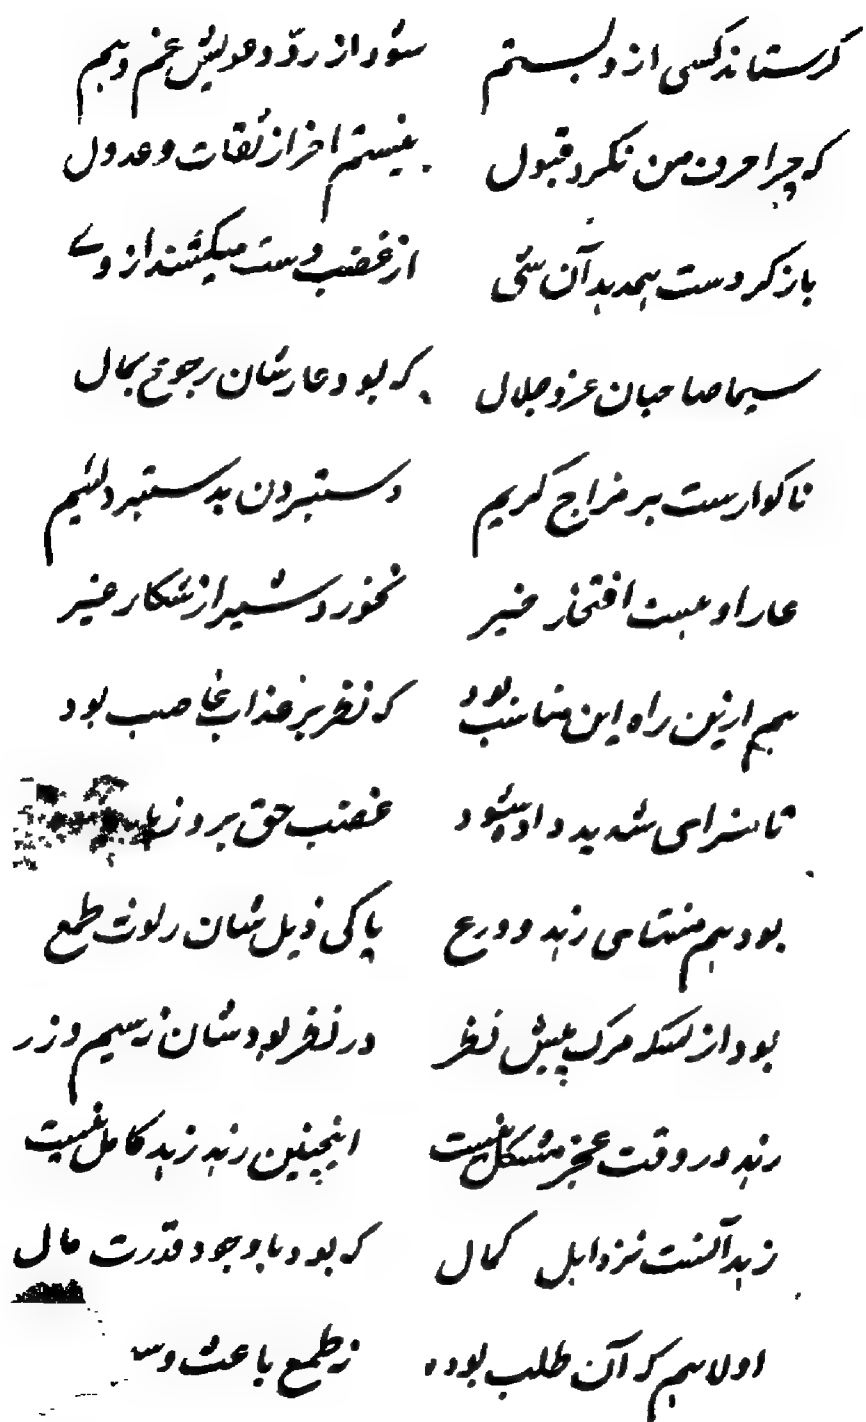 گر ستاند کسی ازو بستم شود از ردّ و عویش غم و هم
که چرا حرف من نکرد قبول نیستم من از ثقات و عدول
باز گر دست همدید آن شی از غضب دست میکشند از وے
سیما صاحبان عز و جلال که بود عارشان رجوع بمال
ناگوارست بر مزاج کریم دستبردن بدستبرد لئیم
عار او هست افتخار خیر نخورد شیر از شکار غیر
هم ازین راه این مناسب بود که نظر بر عذاب غاصب بود
تا سزای شدید داده شود غضب حق برو زیا
بود هم منتهای زهد و ورع پاکی ذیل شان ز لوث طمع
بود از بسکه مرگ پیش نظر در نظر بودشان ز سیم و زر
زهد در وقت عجز مشکل نیست اینچنین زهد زهد کامل نیست
زهد آنست نزد اهل کمال که بود با وجود قدرت مال
اولا هم که آن طلب بوده ز طمع باعث و